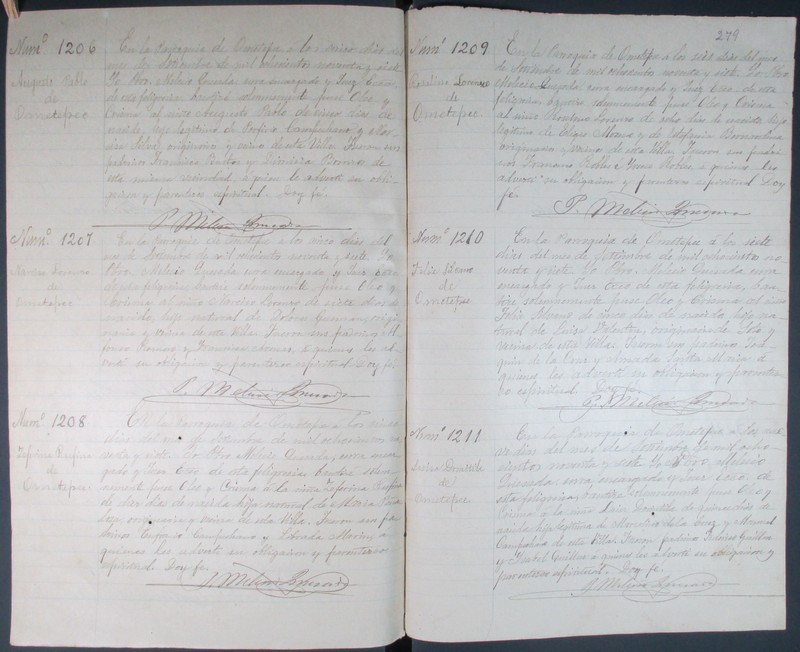 Num.º 1206
Augusto Pablo
de
Ometepec
En la Parroquia de Ometepec á los cinco dias del
mes de Setiembre de mil ochocientos noventa y siete
Yo Pbro. Melecio Quesada cura encargado y Juez Ecco.
de esta feligresia bautizé solemnemente puse Oleo y
Crisma al niño Augusto Pablo de cinco dias de
nacido, hijo legitimo de Porfirio Campuzano y
originarios y vecinos de esta Villa. Fueron sus
padrinos Francisco y Dionicia de
esta misma vecindad á quienes le advertí su obli-
gacion y parentesco espiritual. Doy fé.
P. Melecio Quesada
Num.º 1207
Narciso Lorenzo
de
Ometepec
En la Parroquia de Ometepec á los cinco dias del
mes de Setiembre de mil ochocientos noventa y siete Yo
Pbro. Melecio Quesada cura encargado y Juez Ecco.
de esta feligresia bautizé solemnemente puse Oleo y
Chrisma al niño Narciso Lorenzo de siete dias de
nacido, hijo natural de Dolores Guzman, origi-
naria y vecina de esta Villa. Fueron sus padrinos
y Francisca á quienes les ad-
vertí su obligacion y parentesco espiritual. Doy fé.
P. Melecio Quesada
Num.º 1208
Ceferina Porfiria
de
Ometepec
En la Parroquia de Ometepec á los cinco
dias del mes de Setiembre de mil ochocientos no-
venta y siete. Yo Pbro Melecio Quesada, cura encar-
gado y Juez Ecco de esta feligresia bautizé solem-
nemente puse Oleo y Crisma á la niña Ceferina Porfiria
de diez dias de nacida hija natural de Maria
originaria y vecina de esta Villa. Fueron sus pa-
drinos Eufemio Campuzano y Librada Marin, á
quienes les advertí su obligacion y parentesco
espiritual. Doy fé.
P. Melecio Quesada
279
Num.º 1209
Lorenzo
de
Ometepec
En la Parroquia de Ometepec á los seis dias del mes
de Setiembre de mil ochocientos noventa y siete. Yo Pbro
Melecio Quesada cura encargado y Juez Ecco. de esta
feligresia bautizé solemnemente puse Oleo y Crisma
al niño Lorenzo de ocho dias de nacido hijo
legitimo de y de Estefania
originarios y vecinos de esta Villa. Fueron sus padri-
nos Robles y Robles, á quienes les
advertí su obligacion y parentesco espiritual Doy
fé.
P. Melecio Quesada
Num.º 1210
Felix
de
Ometepec
En la Parroquia de Ometepec á los siete
dias del mes de Setiembre de mil ochocientos no-
venta y siete Yo Pbro. Melecio Quesada cura
encargado y Juez Ecco de esta feligresia, bau-
tizé solemnemente puse Oleo y Crisma al niño
Felix de dias de nacido hijo na-
tural de Luisa originaria de y
vecina de esta Villa. Fueron sus padrinos Joa-
quin de la Cruz y á
quienes les advertí su obligacion y parentes-
co espiritual. Doy fé.
P. Melecio Quesada
Num.º 1211
Luisa Domitila
de
Ometepec
En la Parroquia de Ometepec á los
dias del mes de Setiembre de mil ocho-
cientos noventa y siete Yo Pbro Melecio
Quesada, cura encargado y Juez Ecco. de
esta feligresia, bautizé solemnemente puse Oleo y
Crisma á la niña Luisa Domitila de
nacida hija legitima de Marcelino de la Cruz y
Campuzano de esta Villa. Fueron padrinos Guillen
y Isabel Guillen á quienes les advertí su obligacion y
parentesco espiritual. Doy fé.
P. Melecio Quesada